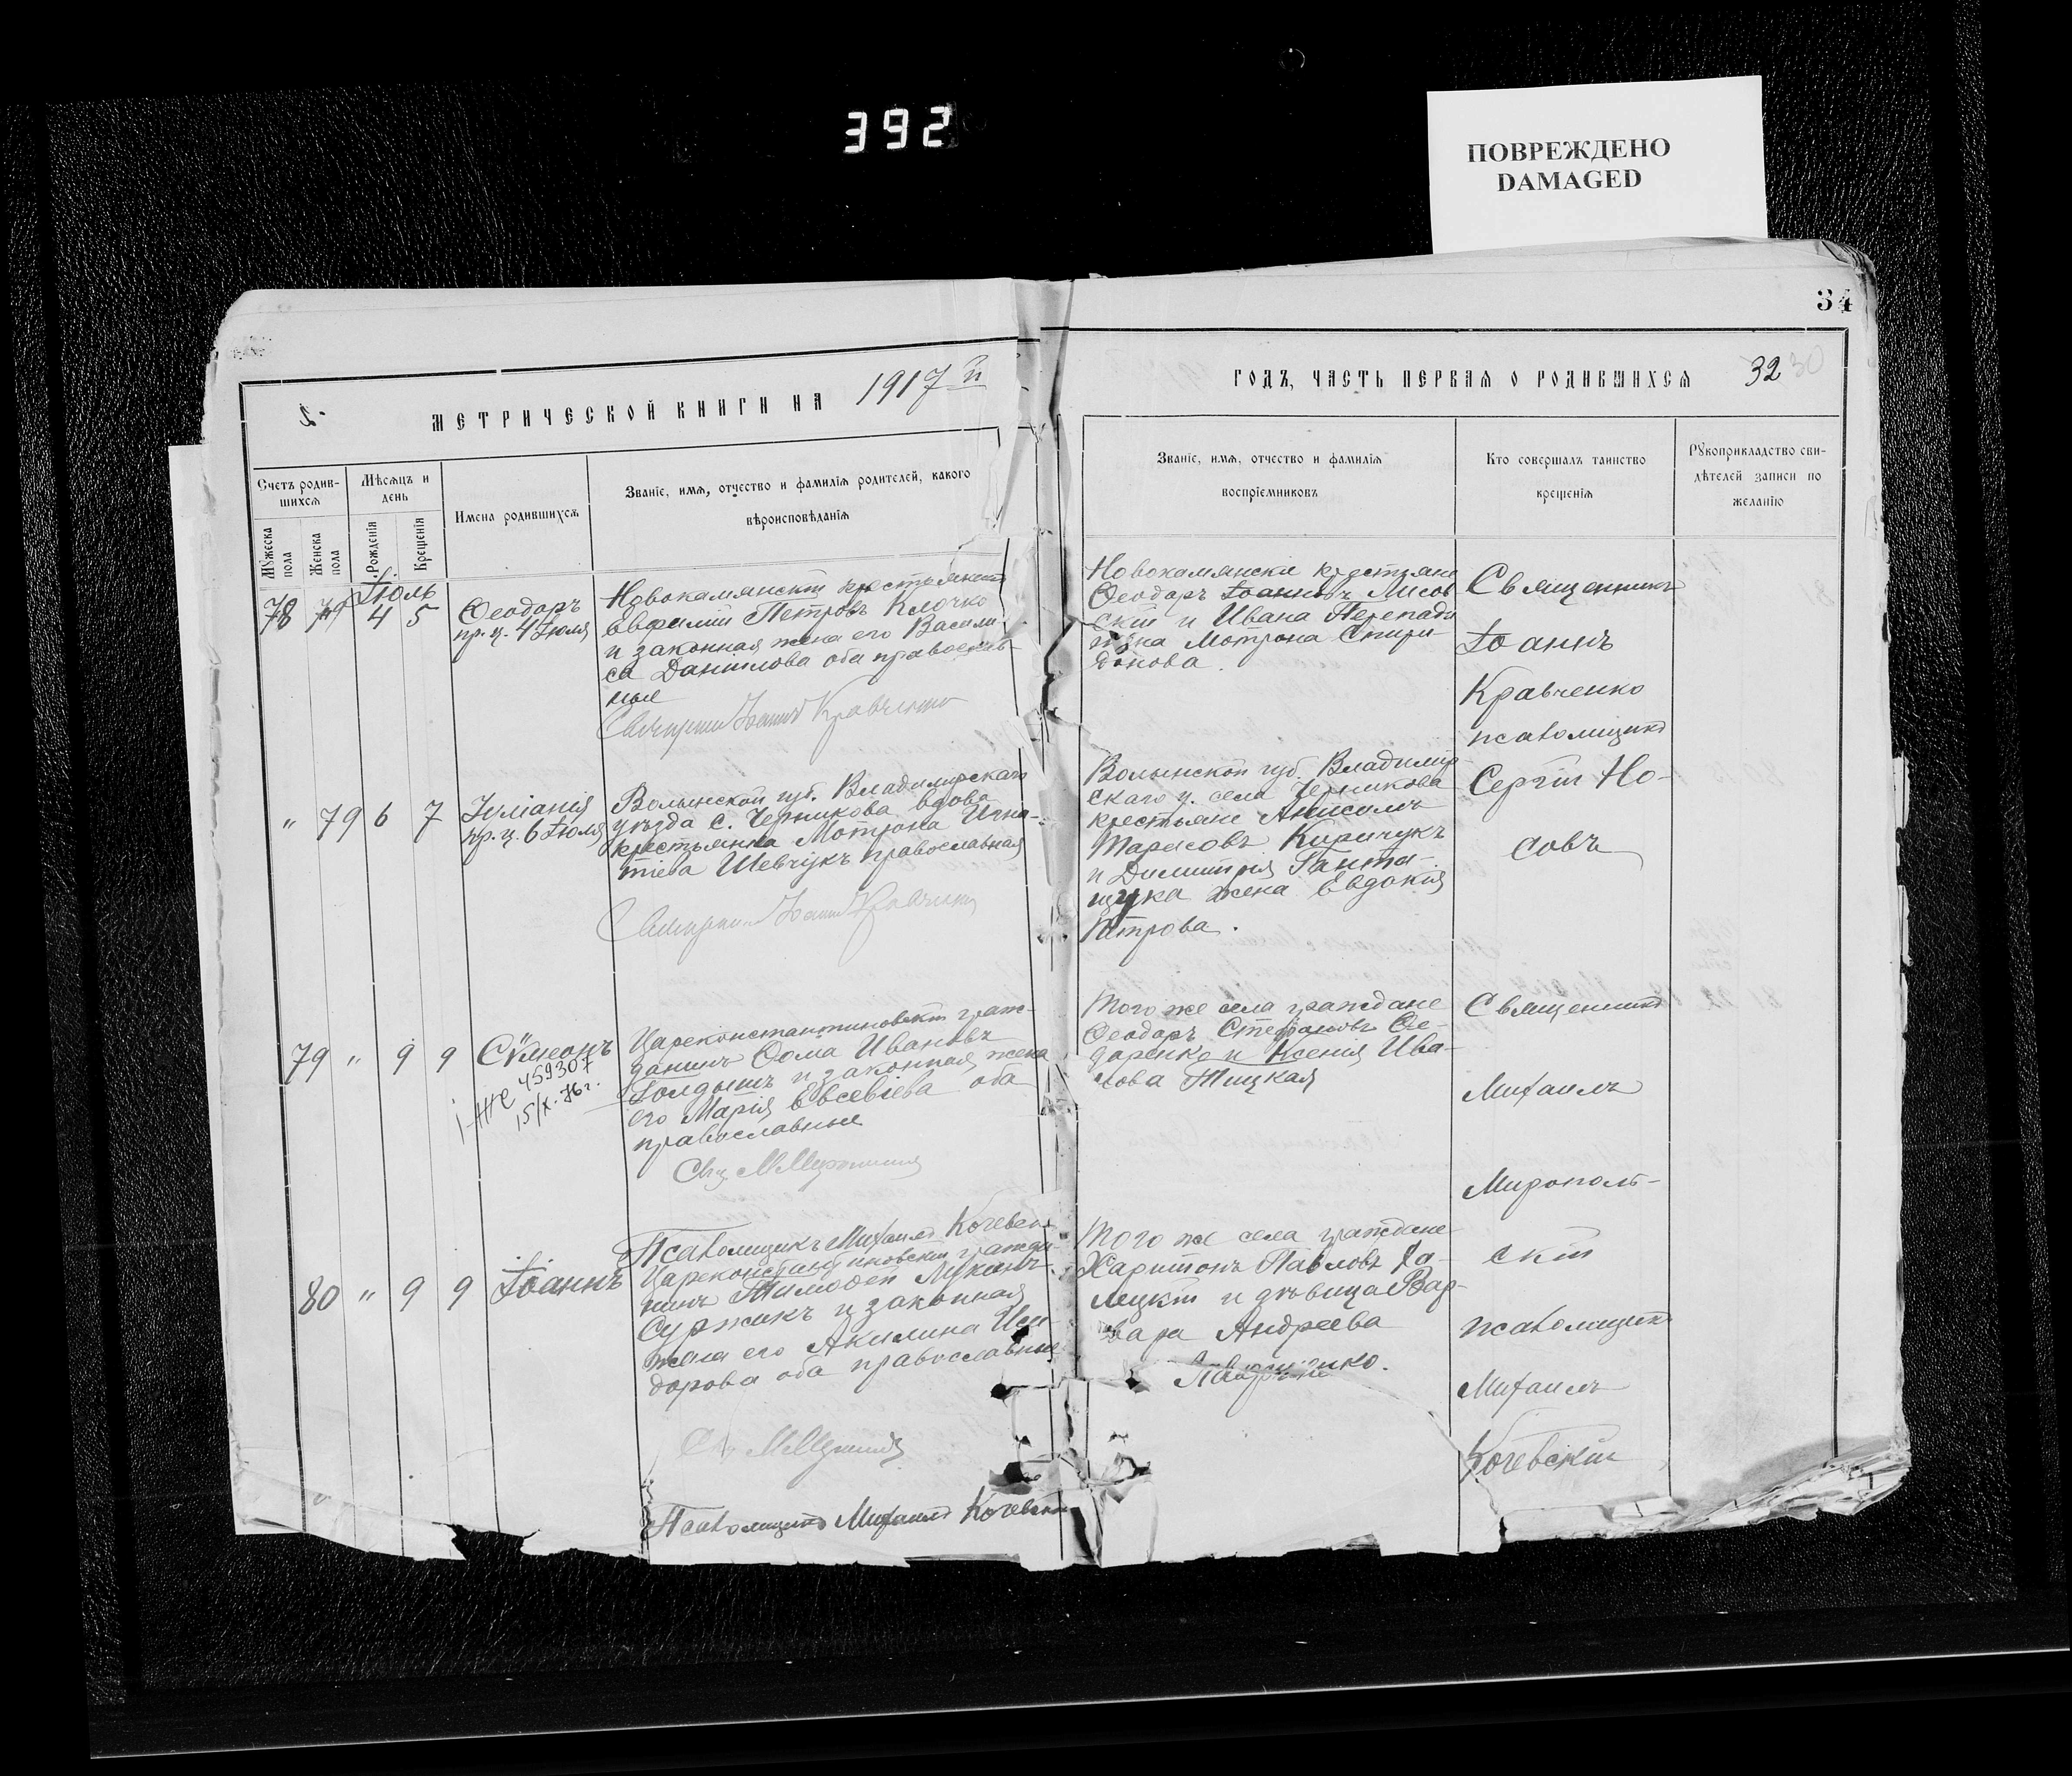 392
ПОВРЕЖДЕНО
DAMAGED
34
МЕТРИЧЕСКОЙ КНИГИ НА 1917 й
ГОДЪ, ЧАСТЬ ПЕРВАЯ О РОДИВШИХСЯ 32 30
Счетъ родив-
шихся
Мѣсяцъ и
день
Имена родившихся
Званіе, имя, отчество и фамилія родителей, какого
вѣроисповѣданія
Мужеска
пола
Женска
пола
Рожденія
Крещенія
Званіе, имя, отчество и фамилія
воспріемниковъ
Кто совершалъ таинство
крещенія
Рукоприкладство сви-
дѣтелей записи по
желанію
Іюль
78 4 5
Ѳеодоръ
пр. ц. 4 Іюля
Новокамянскій крестьянинъ
Евфимій Петровъ Клочко
и законная жена его Васили-
са Даніилова оба православ-
ные
Священникъ Іоаннъ Кравченко
Новокамянскіе крестьяне
Ѳеодоръ Іоанновъ Лисов
скій и Ивана
жена Мотрона Спири-
донова.
Священникъ
Іоаннъ
Кравченко
псаломщикъ
Сергій Но-
совъ
" 79 6 7
Іуліанія
пр. ц. 6 Іюля
Волынской губ. Владимирскаго
уѣзда с. Черникова вдова
крестьянка Мотрона Игна-
тіева Шевчукъ православная
Священникъ Іоаннъ Кравченко
Волынской губ. Владимир-
скаго у. села Черникова
крестьяне Анисимъ
Тарасовъ Киричукъ
и Димитрія
щука жена Евдокія
Петрова.
79 " 9 9
Сѵмеонъ
І-ЖС 459307
15/X-76 г.
Цареконстантиновскій граж-
данинъ Ѳома Ивановъ
Голдышъ и законная жена
его Марія Евсевіева оба
православные
Свящ.
Псаломщикъ Михаилъ Кочевскій
Того же села граждане
Ѳеодоръ Стефановъ Ѳе-
даренко и Ксенія Ива-
нова
Священникъ
Михаилъ
Мирополь-
скій
псаломщикъ
Михаилъ
Кочевскій
80 " 9 9
Іоаннъ
Цареконстантиновскій гражда-
нинъ Тимофей Лукинъ
Суржикъ и законная
жена его Акилина Иси-
дорова оба православные
Того же села граждане
Харитонъ Павловъ Га-
лецкій и дѣвица Вар-
вара Андреева
Псаломщикъ Михаилъ Кочевскій